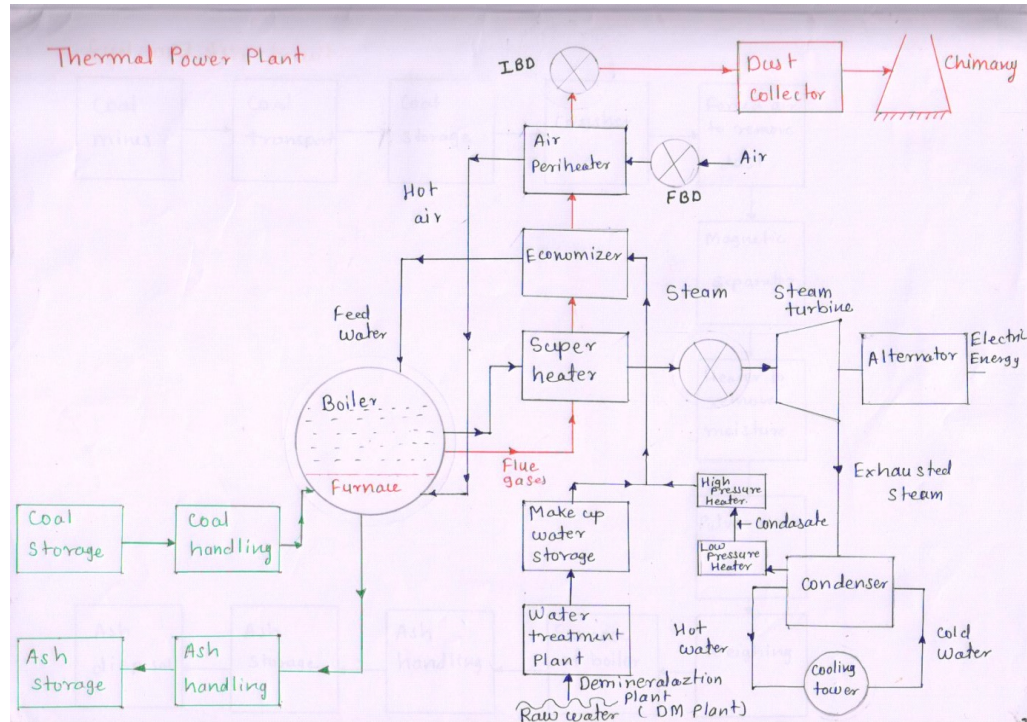 Thermal Power Plant
IBD
Dust
collector
Chimany
Air
Periheater
Air
FBD
Hot
air
Economizer
Steam
Steam
turbine
Feed
Water
Super
heater
Alternator
Electric
Energy
Boiler
Furnace
Flue
gases
Exhausted
Steam
High
Pressure
Heater
Condasate
Low
Pressure
Heater
Coal
Storage
Coal
handling
Make up
water
storage
Condenser
Water
treatment
Plant
Hot
water
Cold
Water
Cooling
tower
Ash
storage
Ash
handling
Demineralaztion
Plant
(DM Plant)
Raw water